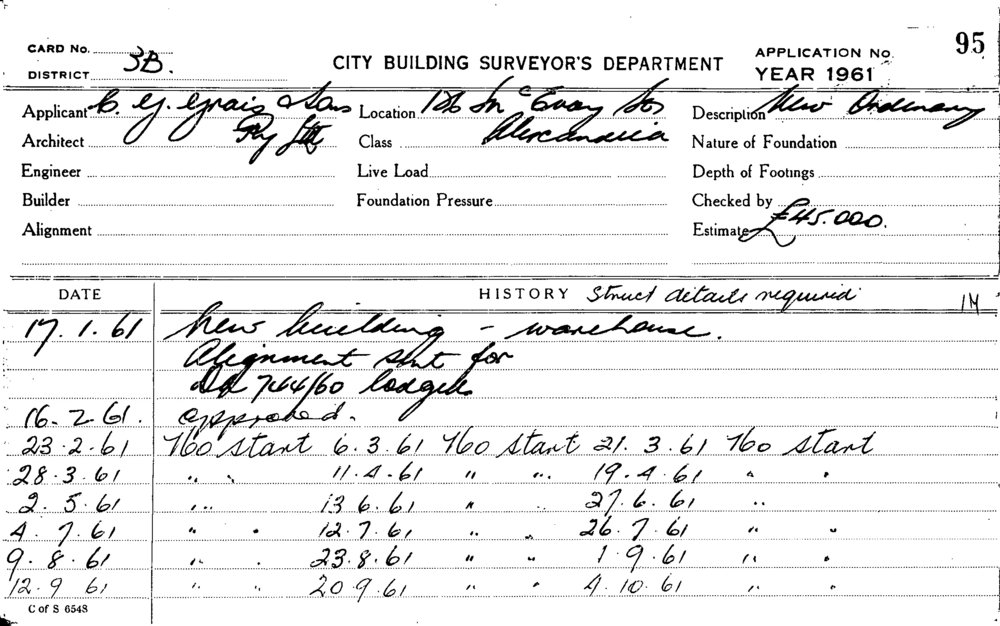 95
CARD No.
DISTRICT 3B.
CITY BUILDING SURVEYOR'S DEPARTMENT
APPLICATION No.
YEAR 1961
Applicant C. G. Grais & Sons Location Mc Evoy St Description New Ordenary
Architect Pty Ltd Class Alexandria Nature of Foundation
Engineer Live Load Depth of Footings
Builder Foundation Pressure Checked by
Alignment Estimate £45.000.
DATE HISTORY Struct details required 14
17.1.61 New building - warehouse.
Alignment sent for
DA 744/60 lodged.
16.2.61. approved.
23.2.61 No start 6.3.61 No start 21.3.61 No start
28.3.61 " " 11.4.61 " " 19.4.61 " "
2.5.61 " " 13 6.61 " " 27.6.61 "
4.7.61 " " 12.7.61 " " 26.7.61 " "
9.8.61 " " 23.8.61 " " 1.9.61 " "
12.9 61 " " 20 9.61 " " 4.10.61 " "
C of S 6548